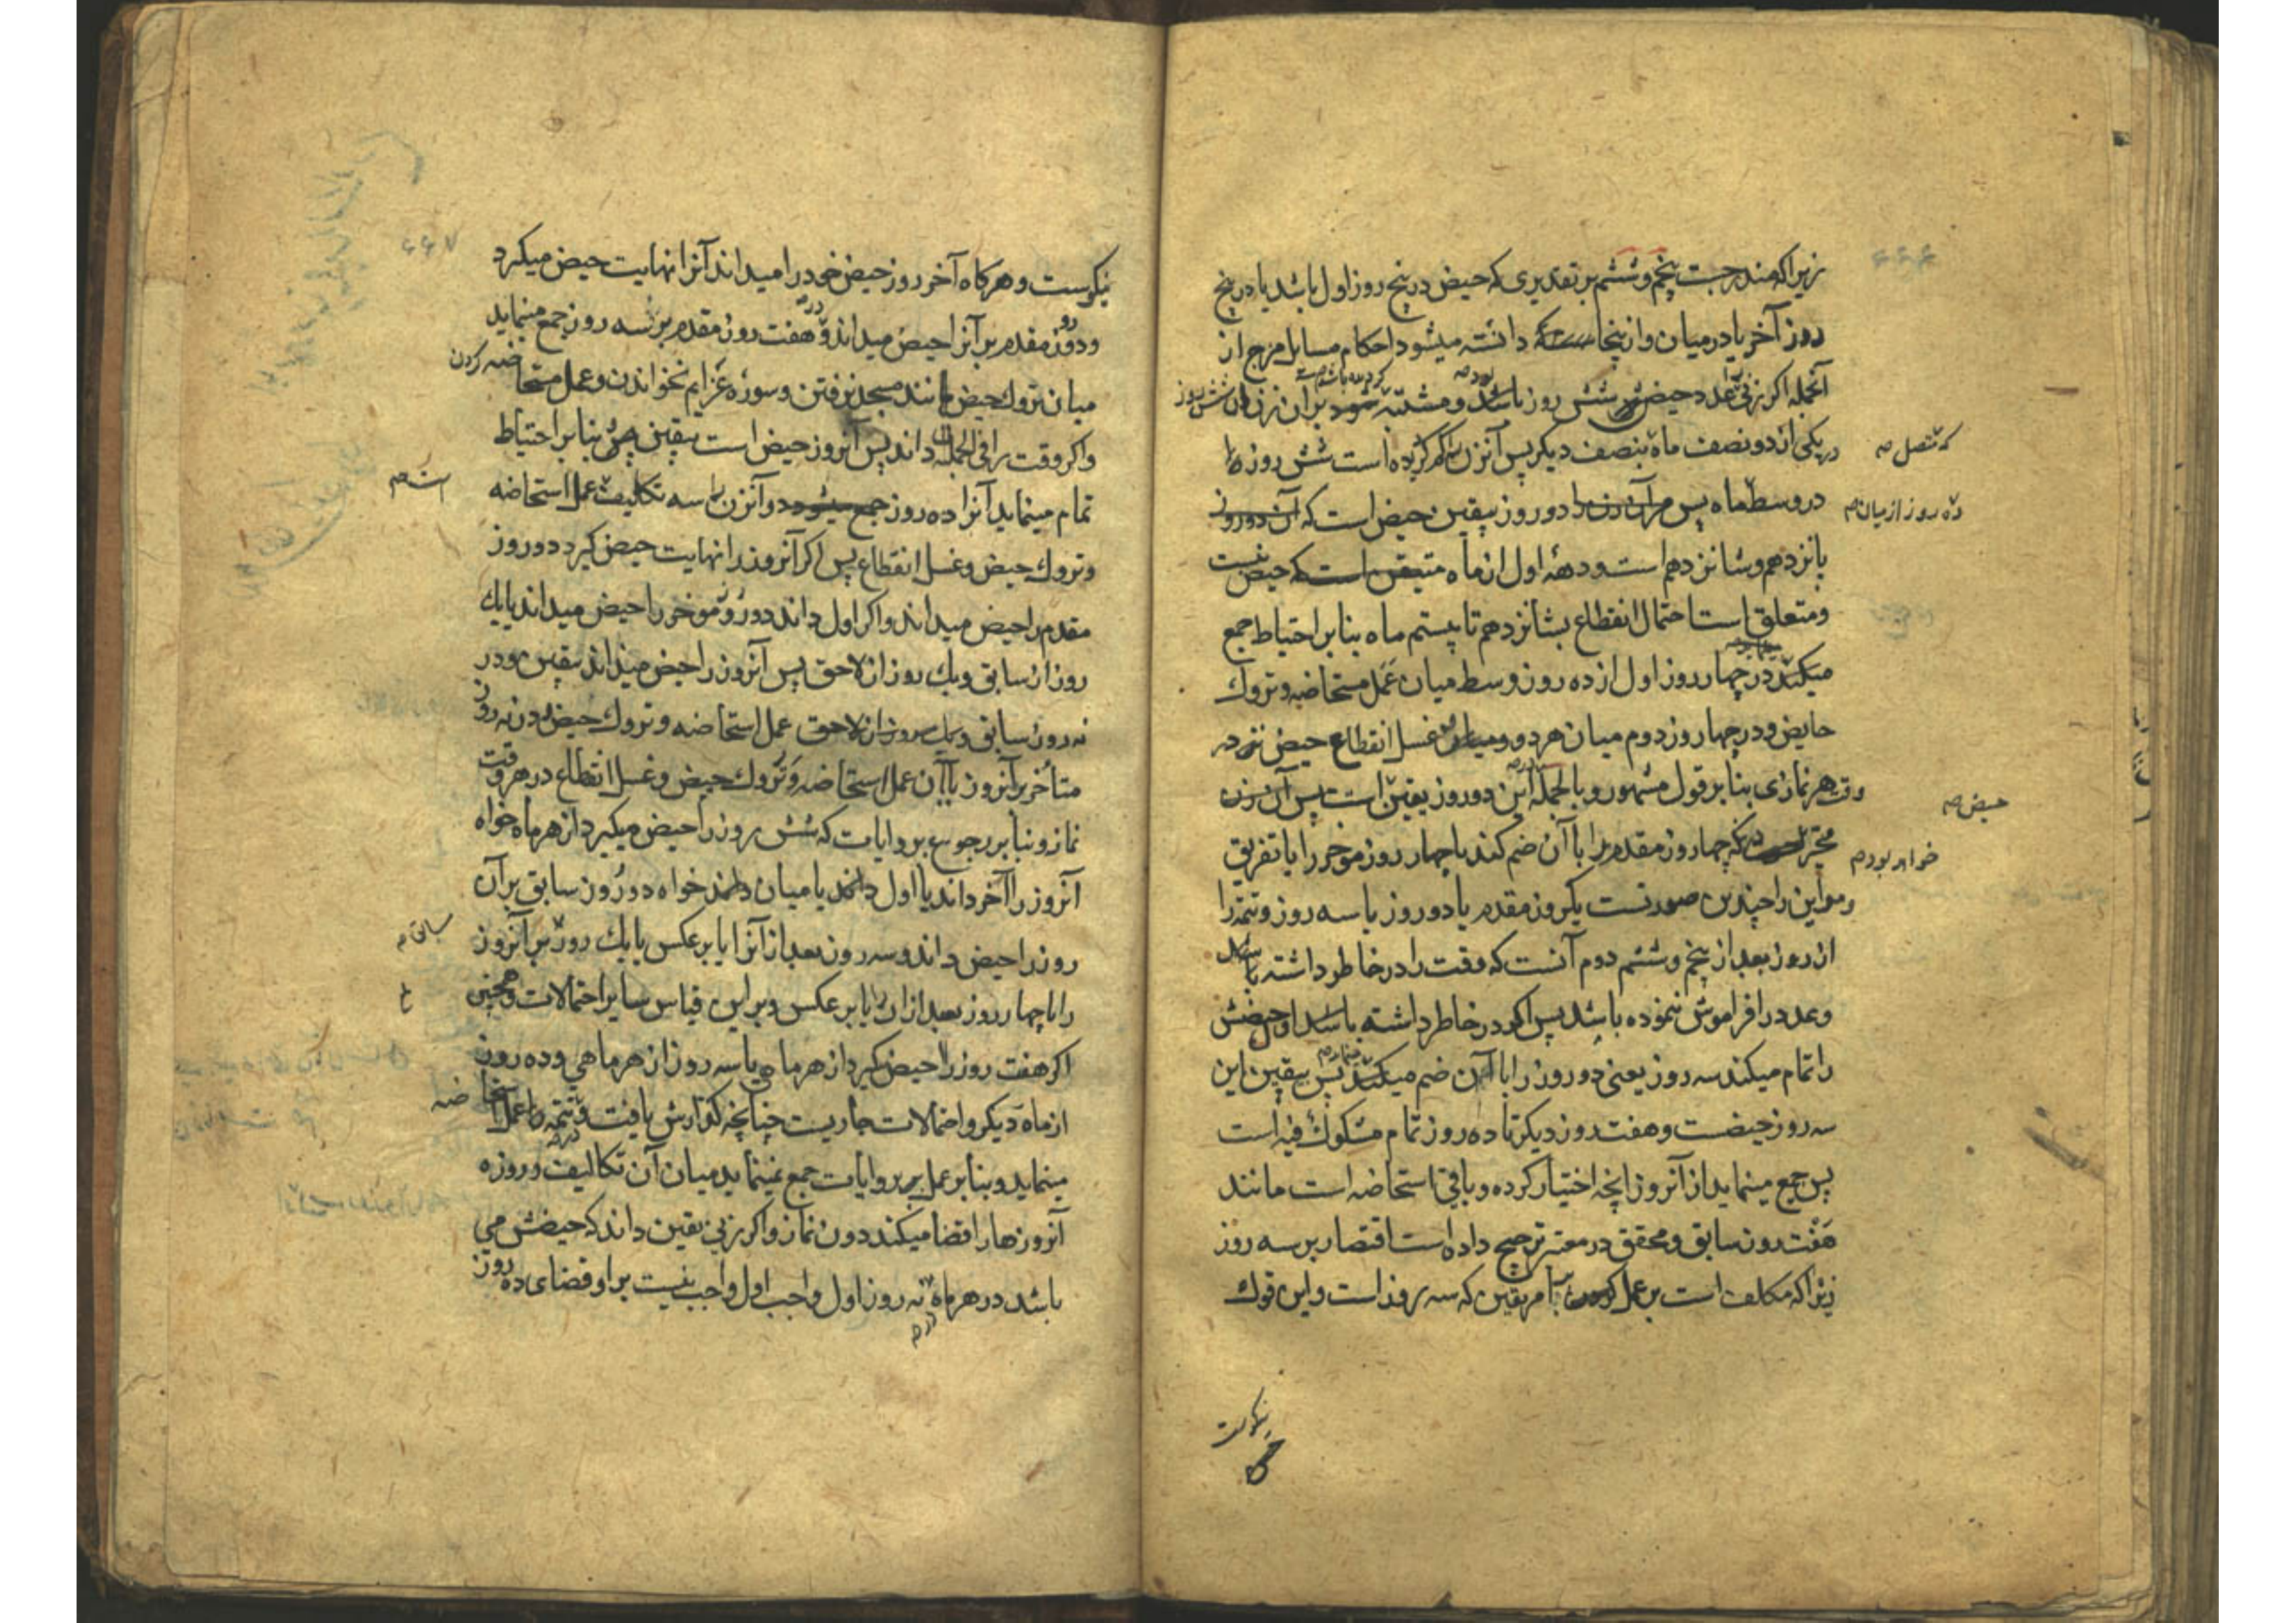 زیرا که مندرجست پنجم و ششم بر تقدیری که حیض در پنج روز اول باشد یا در پنج
روز آخر یا در میان و ازینجا دانسته میشود احکام مسایل مزج از
آنجمله اگر زنی عدد حیض شش روز باشد و مشتبه بر آن زن شش روز
در یکی از دو نصف ماه بنصف دیگر پس آنزن کم کرده است شش روز را
که متصل صه
در وسط ماه پس دو روز بیقین حیض است که آن دو روز
ده روز از میان صه
پانزدهم و شانزدهم است و دههٔ اول از ماه متیقن است که حیض نیست
و متعلق است احتمال انقطاع بشانزدهم تا بیستم ماه بنابر احتیاط جمع
میکند در چهار روز اول از ده روز وسط میان عمل مستحاضه و تروک
حایض و در چهار روز دوم میان هر دو و میان غسل انقطاع حیض نزد
وقت هر نمازی بنابر قول مشهور و بالجمله این دو روز یقین است پس آن زن
حیض صه
مخیر که چهار روز مقدم را با آن ضم کند یا چهار روز موخر را یا تفریق
خواهد بود صه
و مر این را چندین صورتست یکروز مقدم یا دو روز یا سه روز و تتمه را
از روز بعد از پنجم و ششم دوم آنست که وقت را در خاطر داشته باشد
و عدد را فراموش نموده باشد پس اگر در خاطر داشته باشد اول حیضش
را تمام میکند سه روز یعنی دو روز را با آن ضم میکند پس بیقین این
سه روز حیضست و هفت روز دیگر تا ده روز تمام مشکوک فیه است
پس جمع مینماید از آنروز آنچه اختیار کرده و باقی استحاضه است مانند
هفت روز سابق و محقق در معتبر ترجیح داده است اقتصار بر سه روز
زیرا که مکلف است بر عمل بامر یقین که سه روز است و این قول
نیکوست
۶۶۷
نیکوست و هرگاه آخر روز حیض خود را میداند آنرا نهایت حیض میگیرد
و دو روز مقدم بر آنرا حیض میداند و در هفت روز مقدم بر سه روز جمع مینماید
میان تروک حیض مانند مسجد نرفتن و سورهٔ عزایم نخواندن و عمل مستحاضه کردن
و اگر وقت را فی الجمله داند پس آنروز حیض است بیقین پس بنابر احتیاط
تمام مینماید آنرا ده روز و آنزن را سه تکالیف عمل استحاضه
است صه
و تروک حیض و غسل انقطاع پس اگر آنروز را نهایت حیض گیرد دو روز
مقدم را حیض میداند و اگر اول داند دو روز موخر را حیض میداند یا یک
روز از سابق و یک روز از لاحق پس آنروز را حیض میداند بیقین و در
نه روز سابق عمل استحاضه و تروک حیض و در نه روز
متأخر بر آنروز با آن عمل استحاضه و تروک حیض و غسل انقطاع در هر وقت
نماز و بنابر رجوع بروایات که شش روز را حیض میگیرد از هر ماه خواه
آنروز را آخر داند یا اول داند یا میان داند خواه دو روز سابق بر آن
روز را حیض داند و سه روز بعد از آنرا یا بر عکس یا یک روز بر آنروز
سابق صه
را با چهار روز بعد از آن را یا بر عکس و بر این قیاس سایر احتمالات و همچنین
اگر هفت روز را حیض گیرد از هر ماه یا سه روز از هر ماهی و ده روز
از ماه دیگر و احتمالات جاریست چنانچه گذارش یافت و تتمه را عمل استحاضه
مینماید و بنابر عمل بر روایات جمع نمینماید میان آن تکالیف و روزه
آنروزها را قضا میکند دون نماز و اگر زنی یقین داند که حیضش می
باشد در هر ماه نه روز اول واجب نیست بر او قضای ده روز